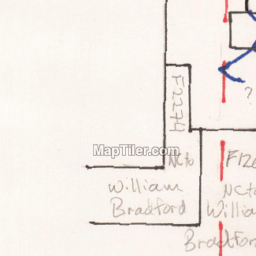 F2274
?
MapTiler.com
NCto
William
Bradford
F126
NCto
Willia
Bradfor